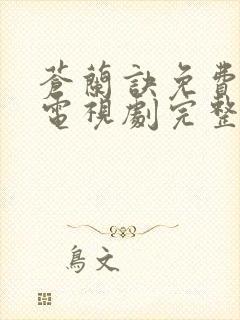 蒼蘭訣免費
電視劇完整
鳥文